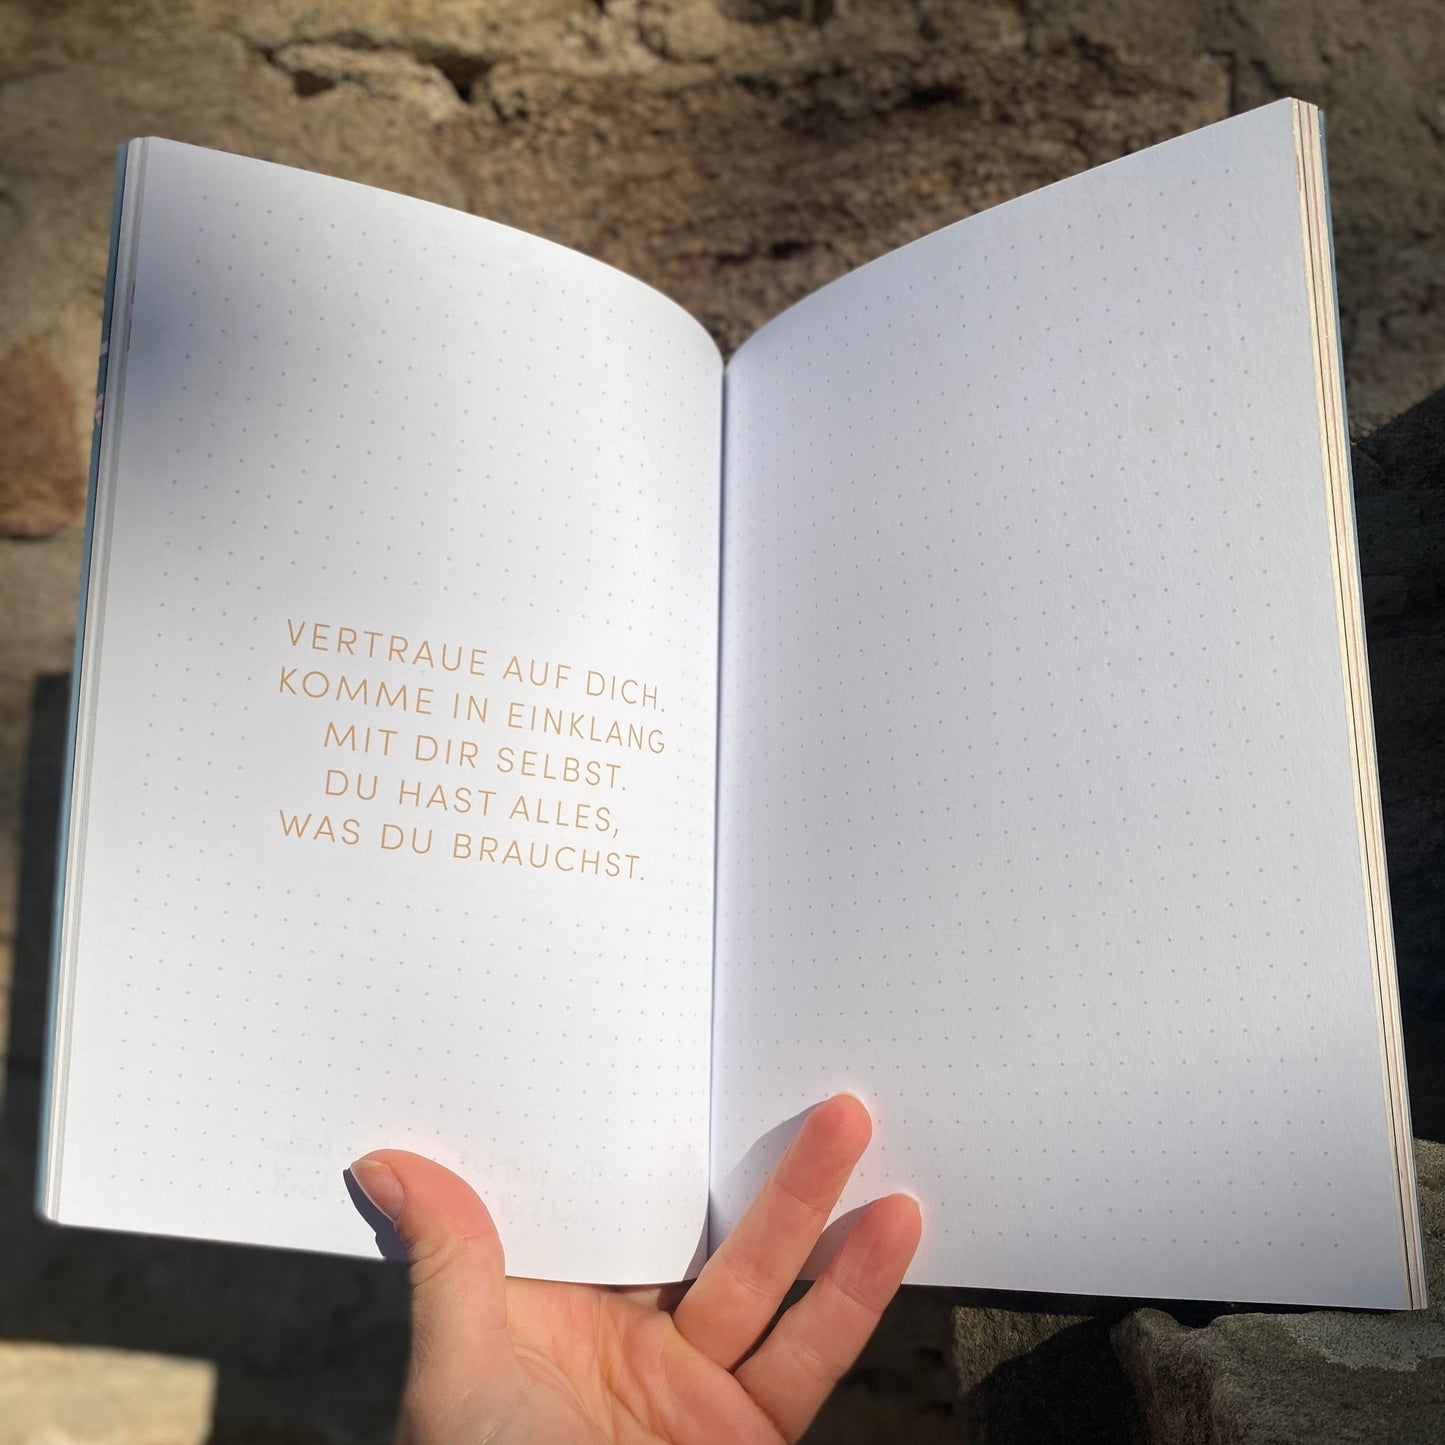 VERTRAUE AUF DICH.
KOMME IN EINKLANG
MIT DIR SELBST.
DU HAST ALLES,
WAS DU BRAUCHST.